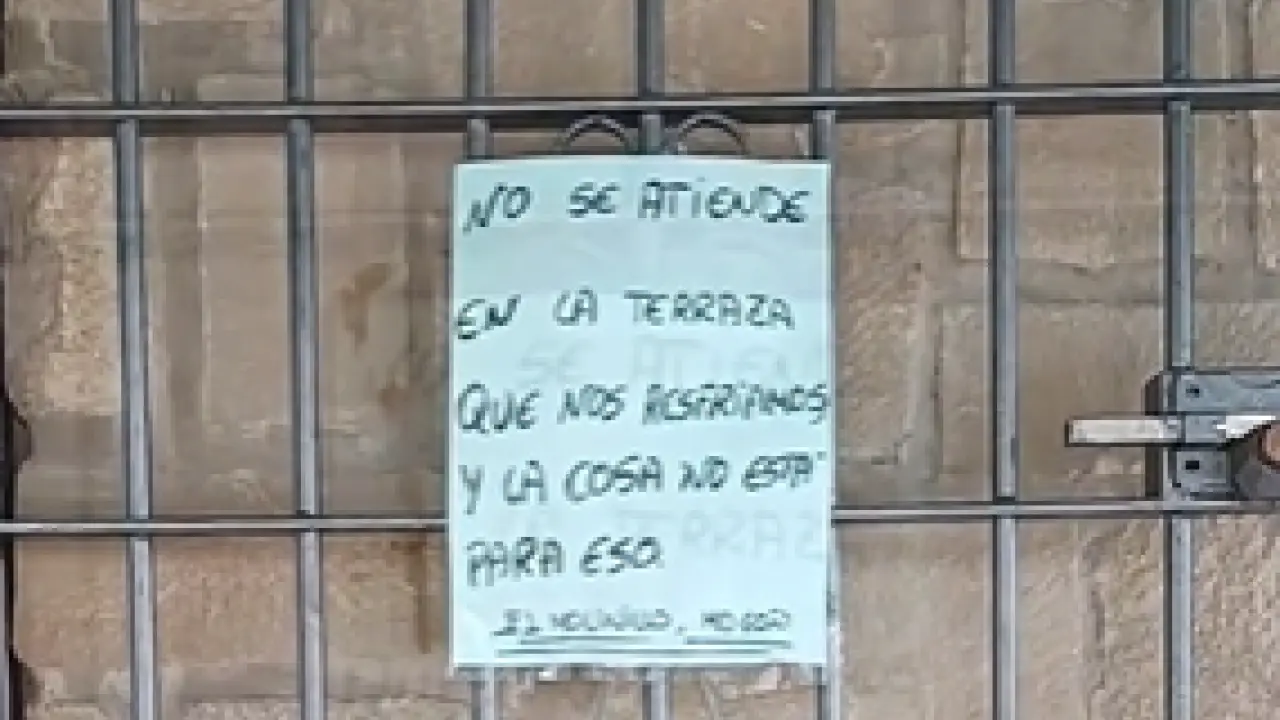 NO SE ATIENDE
EN LA TERRAZA
QUE NOS RESFRIAMOS
Y LA COSA NO ESTÁ
PARA ESO.